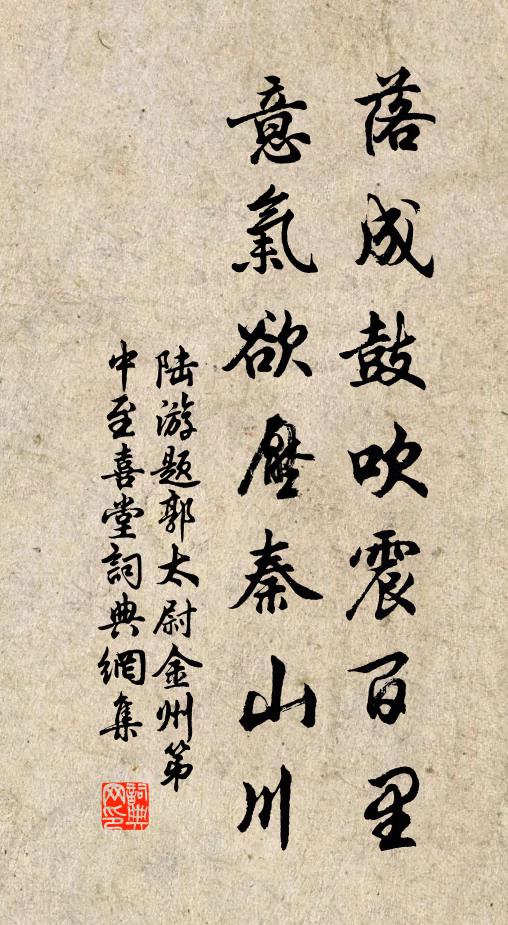 落成鼓吹震百里
意氣欲壓秦山川
陆游题郭太尉金州第
中至喜堂詞典網集
詞典
网印